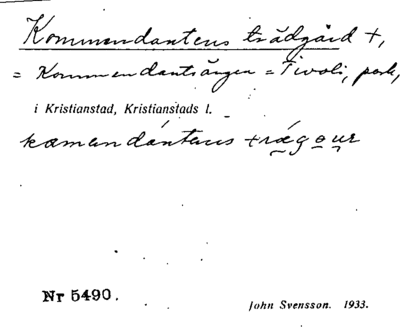 Kommendantens trädgård +,
= Kommendantsängen = Tivoli, park,
i Kristianstad, Kristianstads l.
kæmendántens trǽgo̤ur
Nr 5490.
John Svensson. 1933.